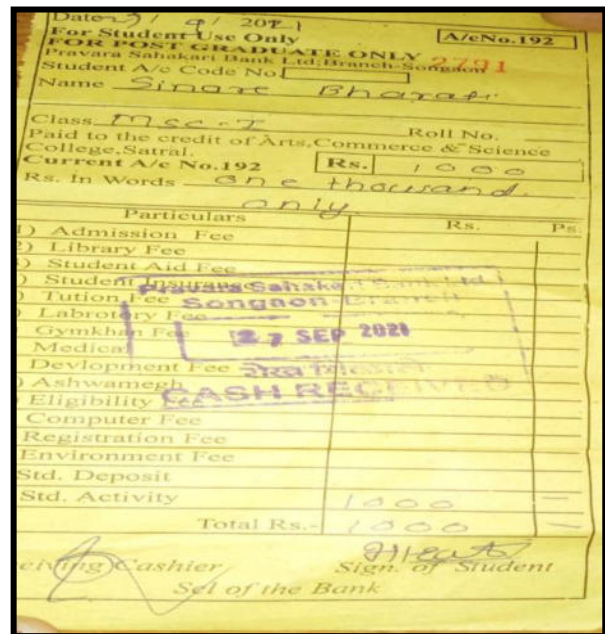 Date 3/ 9/ 2021
For Student Use Only A/cNo.192
FOR POST GRADUATE ONLY
Pravara Sahakari Bank Ltd;Branch-Songaon 2791
Student A/c Code No.
Name Sinare Bharati
Class. Msc-I Roll No.
Paid to the credit of Arts,Commerce & Science
College,Satral.
Current A/c No.192 Rs. 1000
Rs. In Words one thousand
only
Particulars Rs. Ps.
1) Admission Fee
2) Library Fee
) Student Aid Fee
) Student Insurance
) Tution Fee
) Labrotory Fee
Gymkhan Fee
Medical
Devlopment Fee
) Ashwamegh
) Eligibility Fee
Computer Fee
Registration Fee
Environment Fee
Std. Deposit
Std. Activity 1000 —
Total Rs.- 1000 —
Pravara Sahakari Bank Ltd
Songaon Branch
27 SEP 2021
CASH RECEIVED
eiving Cashier Sign. of Student
Sel of the Bank